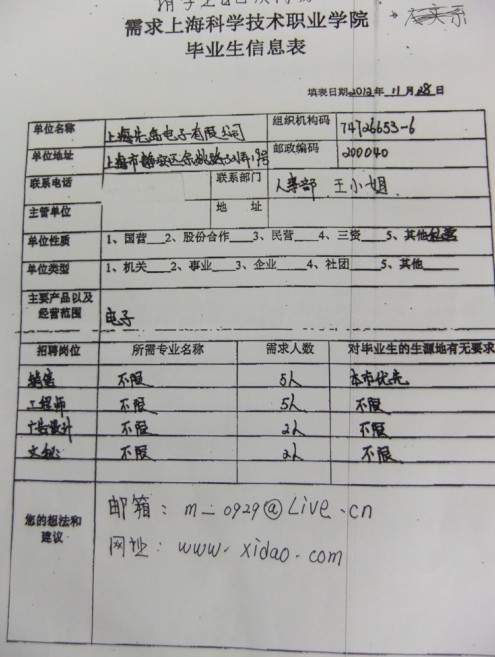 需求上海科学技术职业学院
毕业生信息表
填表日期2012年 11月28日
单位名称 上海先岛电子有限公司 组织机构码 74726653-6
单位地址 上海市静安区余姚路 弄19号 邮政编码 200040
联系电话 联系部门 人事部 王小姐
主管单位 地 址
单位性质 1、国营 2、股份合作 3、民营 4、三资 5、其他私营
单位类型 1、机关 2、事业 3、企业 4、社团 5、其他
主要产品以及
经营范围 电子
招聘岗位 所需专业名称 需求人数 对毕业生的生源地有无要求
销售 不限 5人 本市优先
工程师 不限 5人 不限
会计 不限 2人 不限
文秘 不限 2人 不限
您的想法和
建议
邮箱：m_0929@Live.cn
网址：www.xidao.com